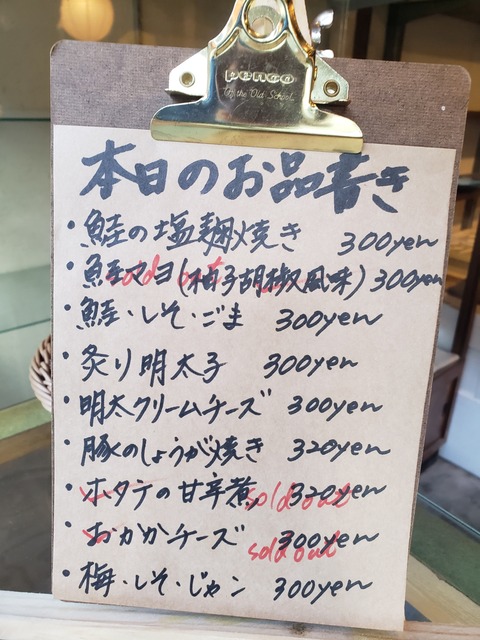 penco
"On the Old School"
本日のお品書き
・鮭の塩麹焼き 300yen
・鮭マヨ(柚子胡椒風味) 300yen sold out
・鮭・しそ・ごま 300yen
・炙り明太子 300yen
・明太クリームチーズ 300yen
・豚のしょうが焼き 320yen
・ホタテの甘辛煮 320yen sold out
・おかかチーズ 300yen sold out
・梅・しそ・じゃこ 300yen